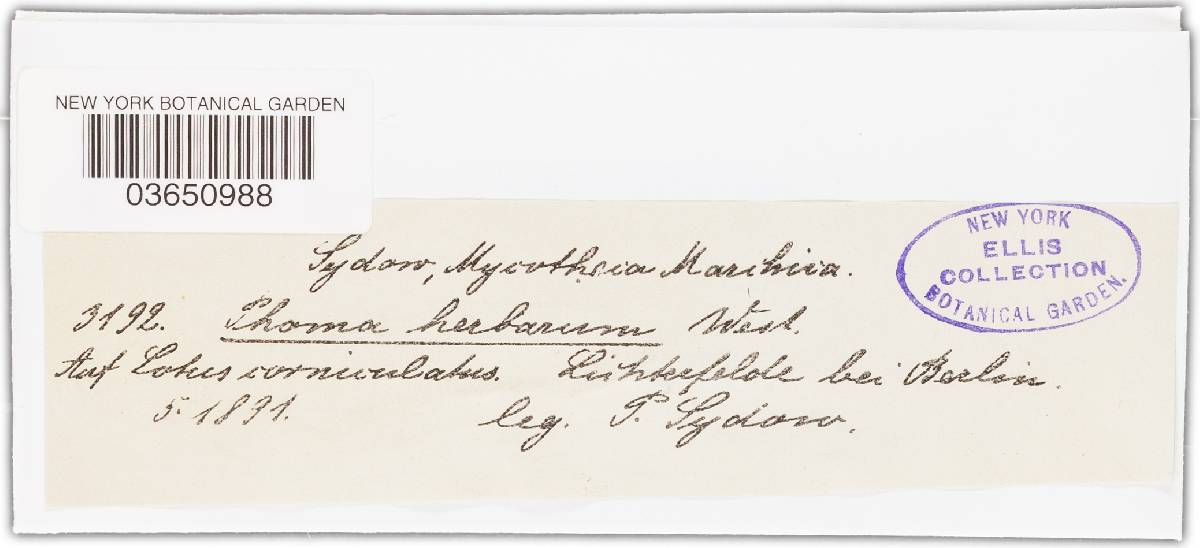 NEW YORK BOTANICAL GARDEN
03650988
NEW YORK
ELLIS
COLLECTION
BOTANICAL GARDEN.
Sydow, Mycotheca Marchica.
3192. Phoma herbarum West.
Auf Lotus corniculatus. Lichterfelde bei Berlin.
5. 1891. leg. P. Sydow.